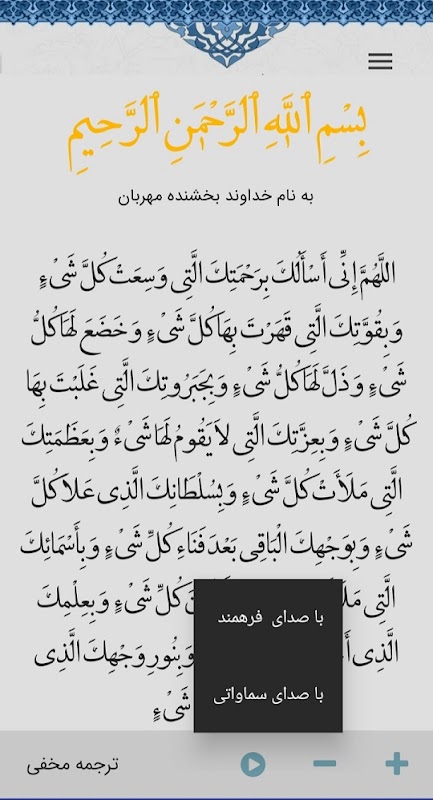 بِسْمِ ٱللَّهِ ٱلرَّحْمَٰنِ ٱلرَّحِيمِ
به نام خداوند بخشنده مهربان
اللَّهُمَّ إِنِّي أَسْأَلُكَ بِرَحْمَتِكَ الَّتِي وَسِعَتْ كُلَّ شَيْءٍ
وَ بِقُوَّتِكَ الَّتِي قَهَرْتَ بِهَا كُلَّ شَيْءٍ وَ خَضَعَ لَهَا كُلُّ
شَيْءٍ وَ ذَلَّ لَهَا كُلُّ شَيْءٍ وَ بِجَبَرُوتِكَ الَّتِي غَلَبْتَ بِهَا
كُلَّ شَيْءٍ وَ بِعِزَّتِكَ الَّتِي لاَ يَقُومُ لَهَا شَيْءٌ وَ بِعَظَمَتِكَ
الَّتِي مَلَأَتْ كُلَّ شَيْءٍ وَ بِسُلْطَانِكَ الَّذِي عَلاَ كُلَّ
شَيْءٍ وَ بِوَجْهِكَ الْبَاقِي بَعْدَ فَنَاءِ كُلِّ شَيْءٍ وَ بِأَسْمَائِكَ
الَّتِي كُلِّ شَيْءٍ وَ بِعِلْمِكَ
الَّذِي وَ بِنُورِ وَجْهِكَ الَّذِي
شَيْءٍ
با صدای فرهمند
با صدای سماواتی
ترجمه مخفی